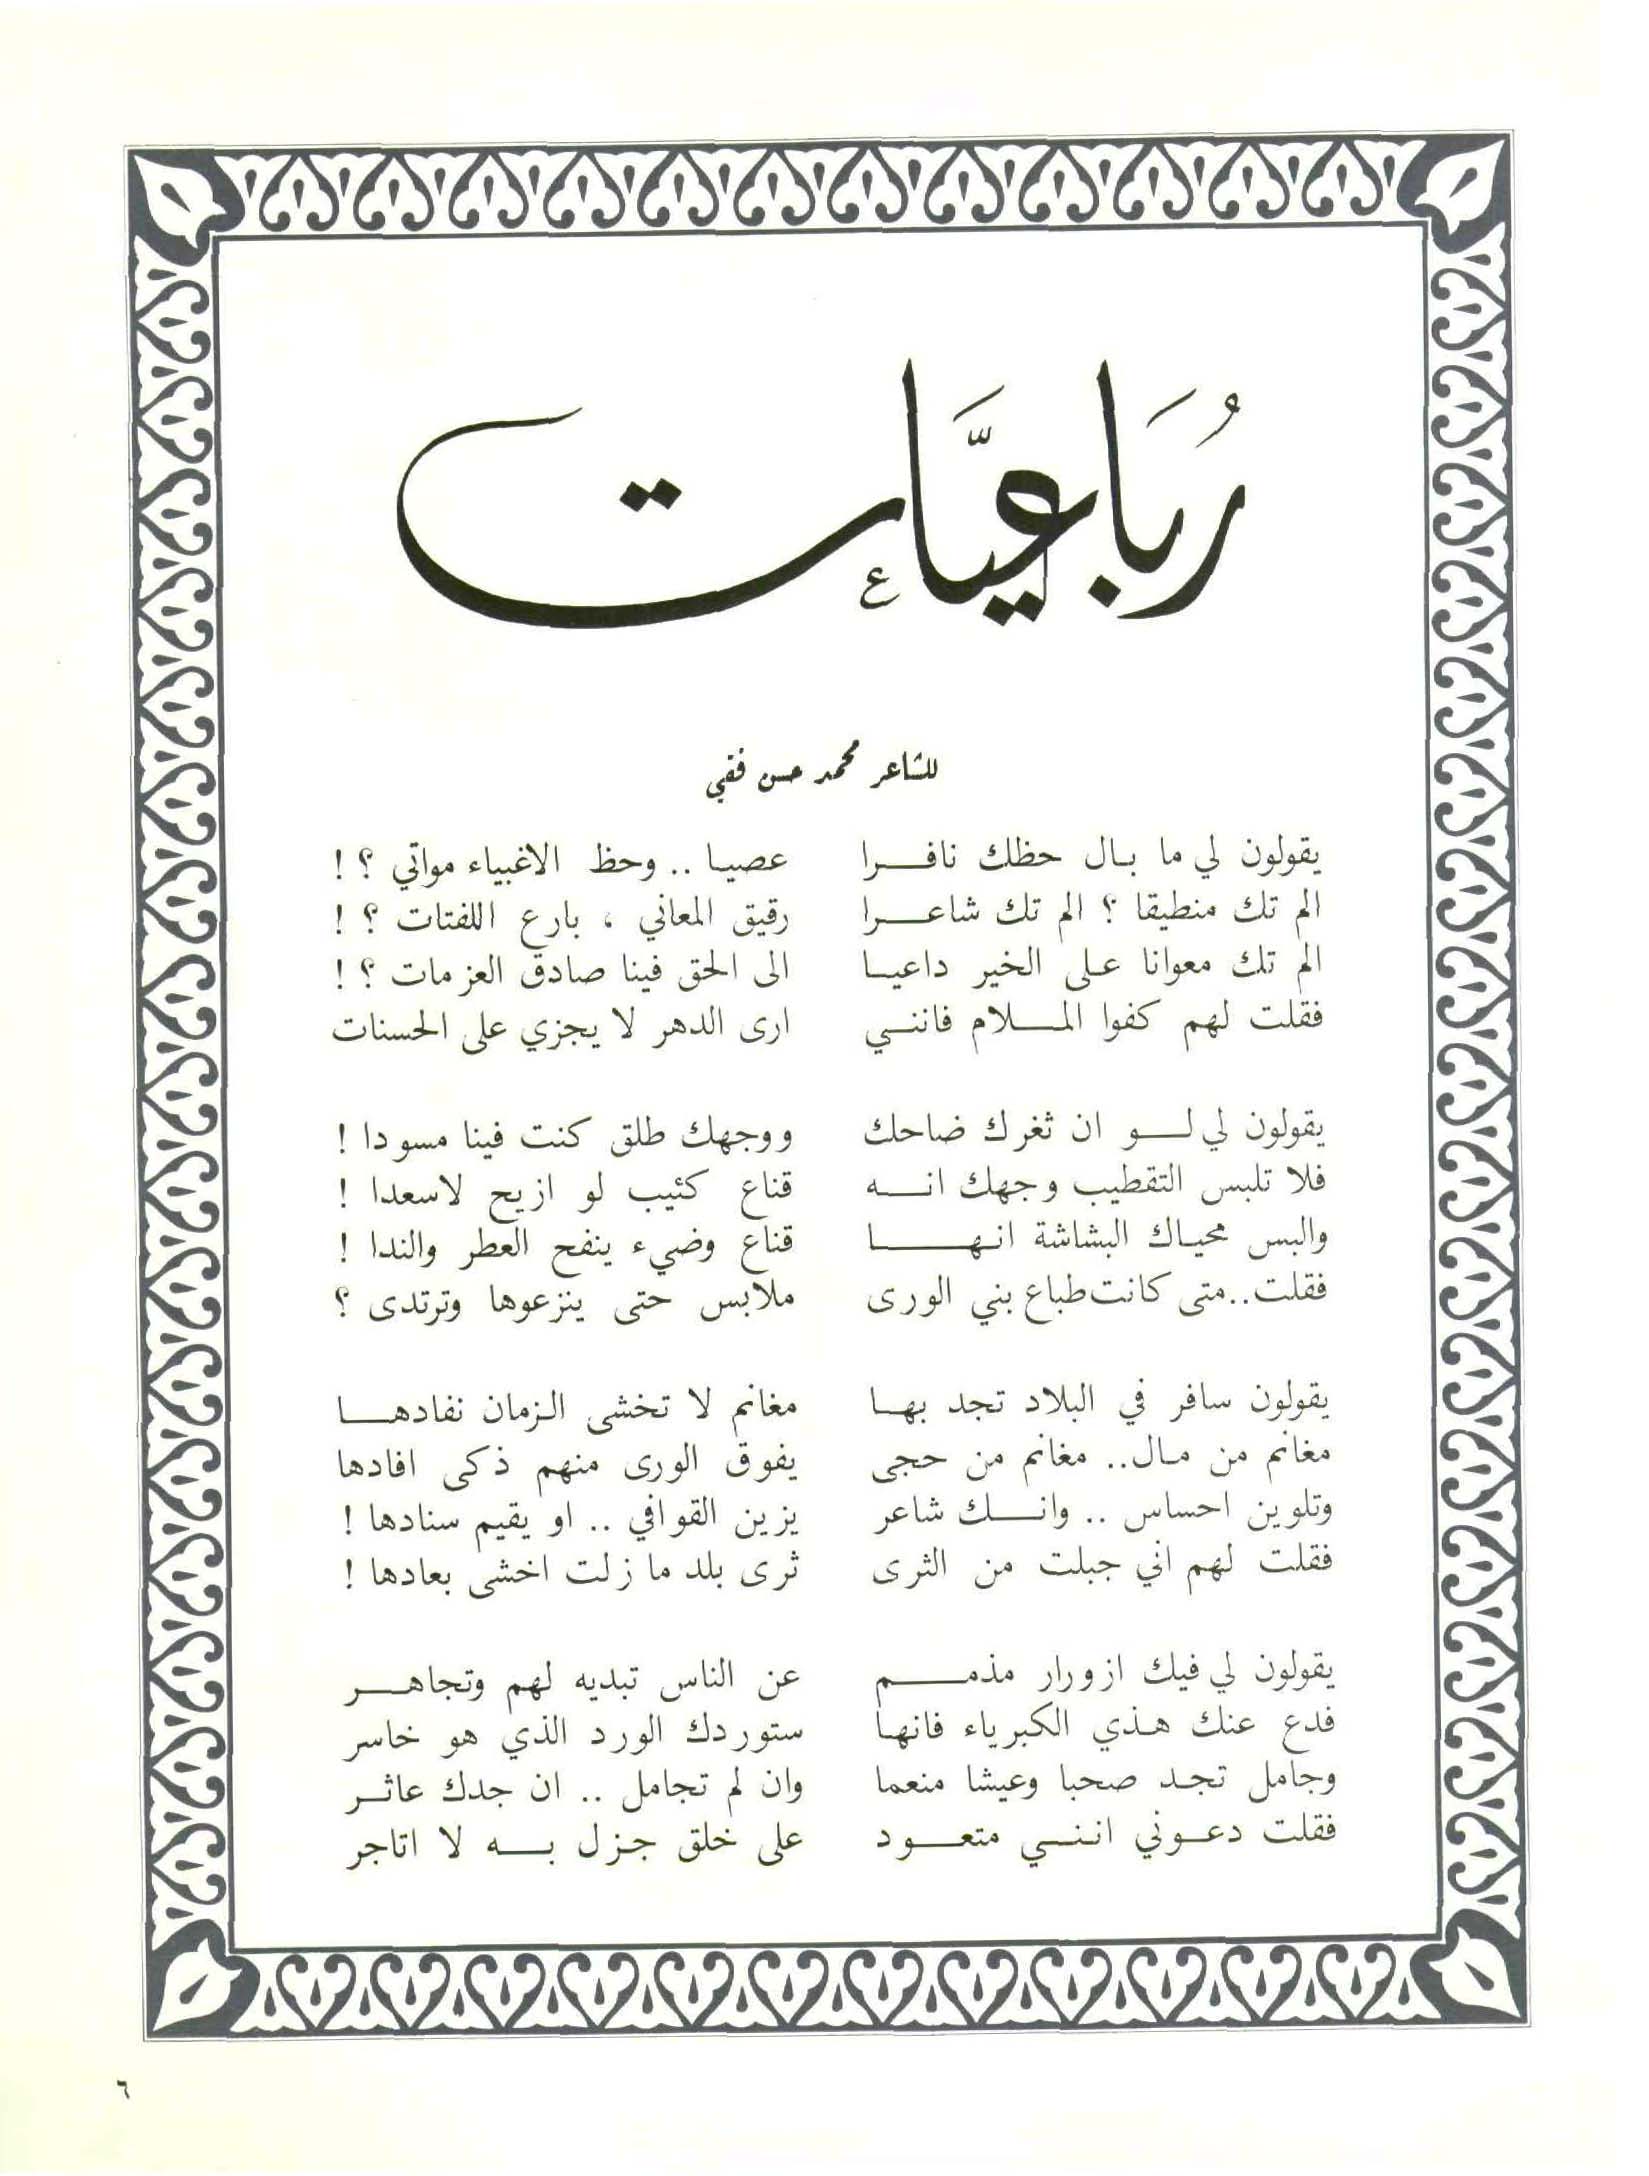 رُبَاعيَّات
للشاعر محمد حسن فقي
يقولون لي ما بال حظك نافرا عصيا .. وحظ الاغبياء مواتي ؟ !
الم تك منطيقا ؟ الم تك شاعرا رقيق المعاني ، بارع اللفتات ؟ !
الم تك معوانا على الخير داعيا الى الحق فينا صادق العزمات ؟ !
فقلت لهم كفوا الملام فانني ارى الدهر لا يجزي على الحسنات
يقولون لي لو ان ثغرك ضاحك ووجهك طلق كنت فينا مسودا !
فلا تلبس التقطيب وجهك انه قناع كئيب لو ازيح لاسعدا !
والبس محياك البشاشة انها قناع وضيء ينفح العطر والندا !
فقلت..متى كانت طباع بني الورى ملابس حتى ينزعوها وترتدى ؟
يقولون سافر في البلاد تجد بها مغانم لا تخشى الزمان نفادها
مغانم من مال.. مغانم من حجى يفوق الورى منهم ذكى افادها
وتلوين احساس .. وانك شاعر يزين القوافي .. او يقيم سنادها !
فقلت لهم اني جبلت من الثرى ثرى بلد ما زلت اخشى بعادها !
يقولون لي فيك ازورار مذمم عن الناس تبديه لهم وتجاهر
فدع عنك هذي الكبرياء فانها ستوردك الورد الذي هو خاسر
وجامل تجد صحبا وعيشا منعما وان لم تجامل .. ان جدك عاثر
فقلت دعوني انني متعود على خلق جزل به لا اتاجر
٦